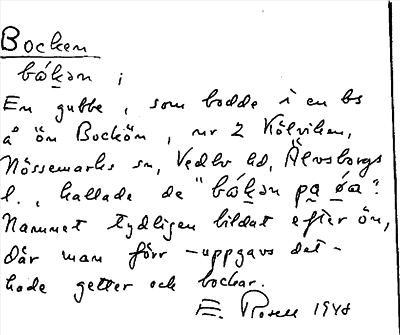 Bocken
bók̲ən ;
En gubbe, som bodde i en bs
å ön Bockön, nr 2 Kölviken,
Nössemarks sn, Vedbo hd, Älvsborgs
l., kallade de "bók̲ən pa̲ øa̲"?
Namnet tydligen bildat efter ön,
där man förr – uppgavs det –
hade getter och bockar.
E. Rosell 1948